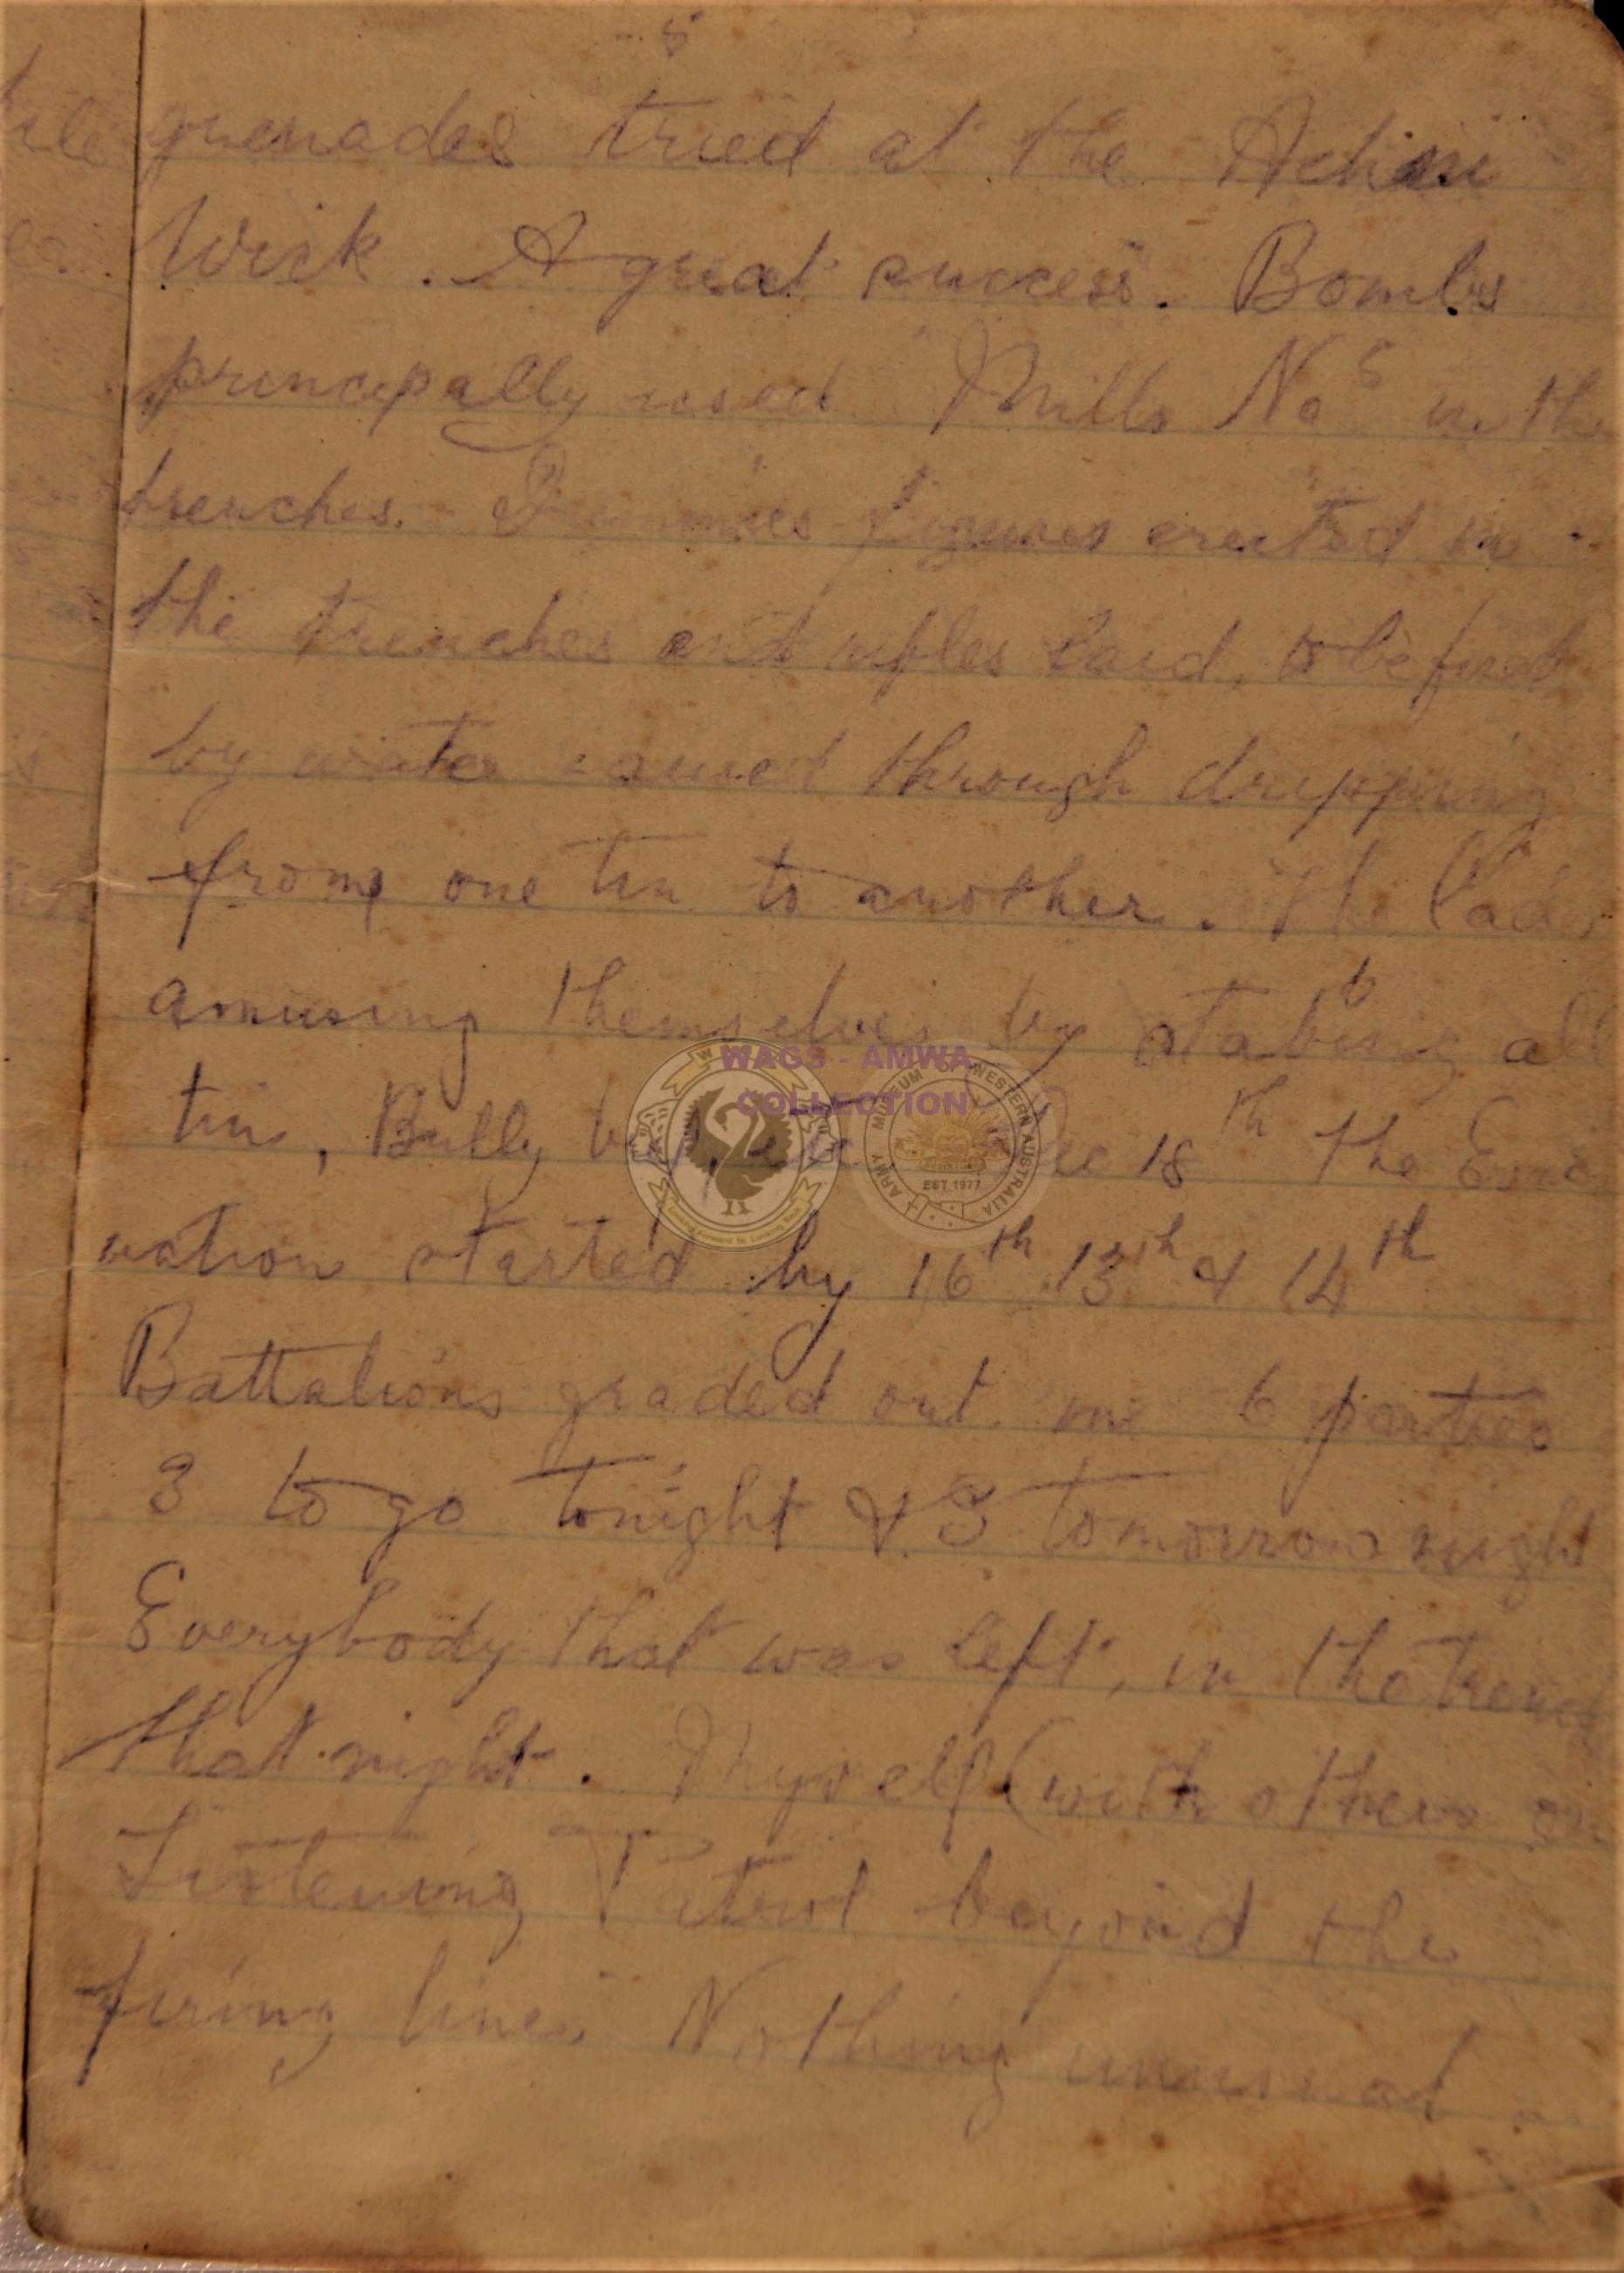 grenades tried at the
Wick. A great success. Bombs
principally used Mills No 5 in the
trenches. Dummies figures erected in
the trenches and rifles laid, to be fired
by water caused through dripping
from one tin to another. The lads
amusing themselves by stabbing all
tin, Bully Dec 18th the Eva
uation started by 16th 13th & 14th
Battalions graded out in 6 parties
3 to go tonight & 3 tomorrow night
Everybody that was left, in the trench
that night. Myself (with others on
Listening Patrol beyond the
firing line. Nothing unusual
WAGS - AMWA
COLLECTION
ARMY MUSEUM OF WESTERN AUSTRALIA
EST 1977